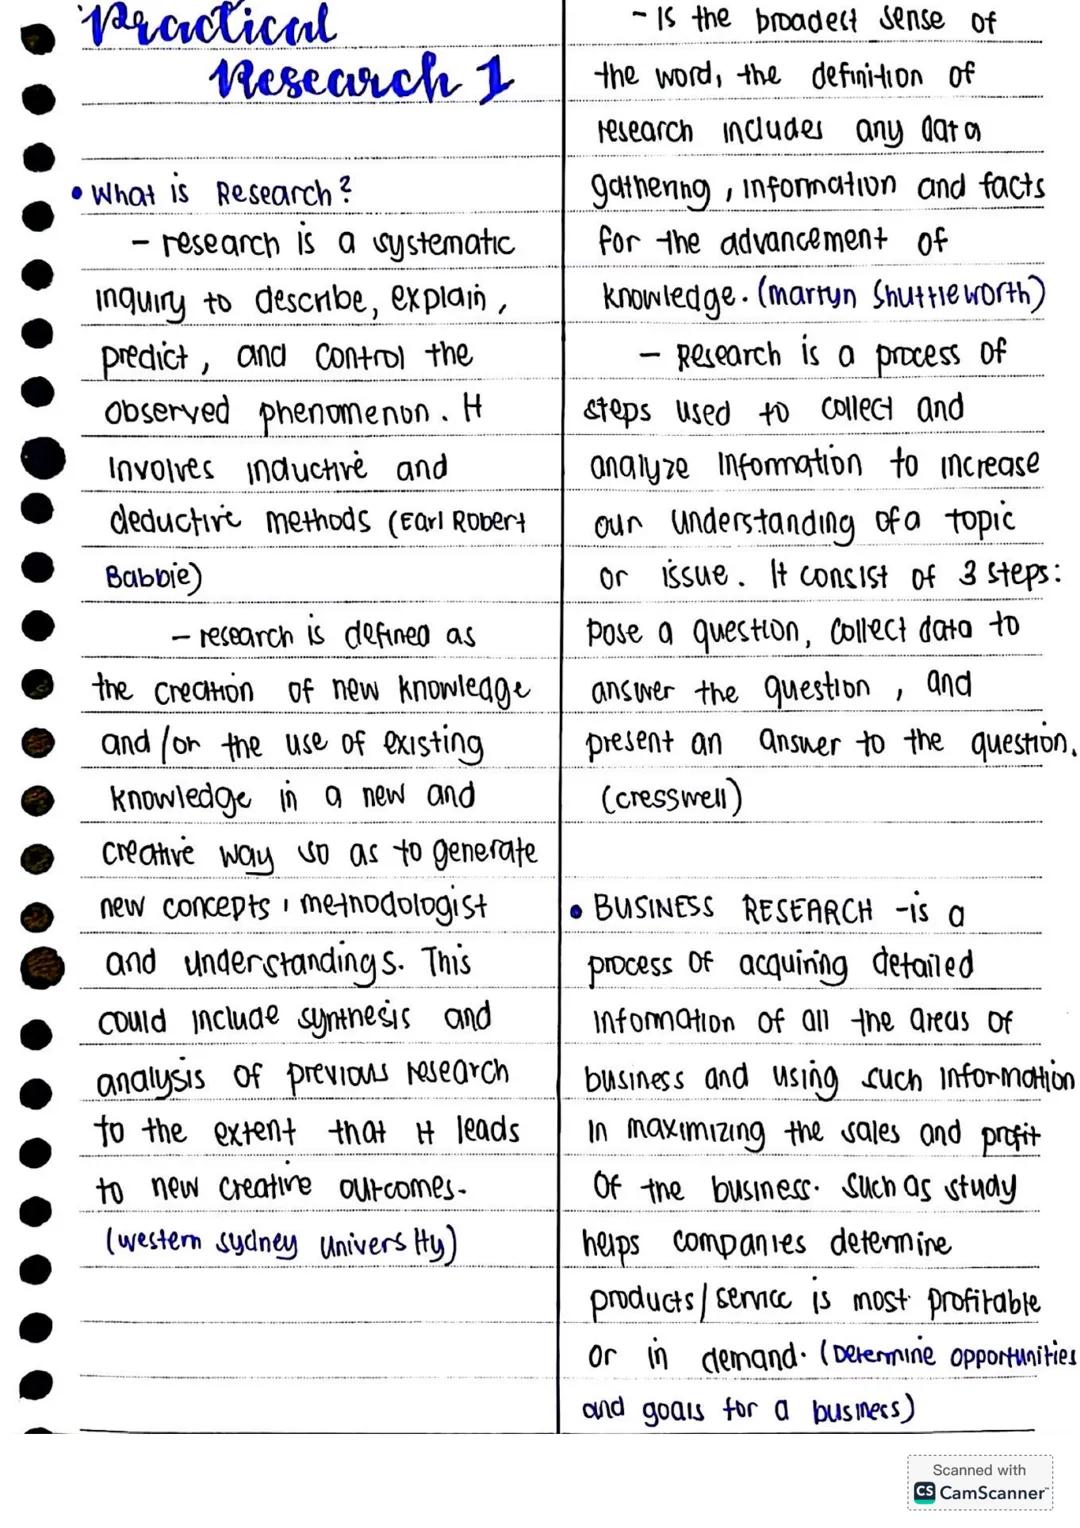 Practical
Research 1
• What is Research?
- research is a systematic
inquiry to describe, explain,
predict, and control the
observed phenomenon. It
involves inductive and
deductive methods (Earl Robert
Babbie)
- research is defined as
the creation of new knowledge
and/or the use of existing
knowledge in a new and
creative way so as to generate
new concepts, methodologist
and understandings. This
could include synthesis and
analysis of previous research
to the extent that it leads
to new creative outcomes.
(western sydney university)
- Is the broadest sense of
the word, the definition of
research includes any data
gathering, information and facts
for the advancement of
knowledge. (martyn Shuttleworth)
- Research is a process of
steps used to collect and
analyze information to increase
our understanding of a topic
or issue. It consist of 3 steps:
pose a question, collect data to
answer the question, and
present an answer to the question.
(cresswell)
• BUSINESS RESEARCH - is a
process of acquiring detailed
information of all the areas of
business and using such information
in maximizing the sales and profit
of the business. Such as study
helps companies determine
products/service is most profitable
or in demand. (Determine opportunities
and goals for a business)
Scanned with
CS CamScanner